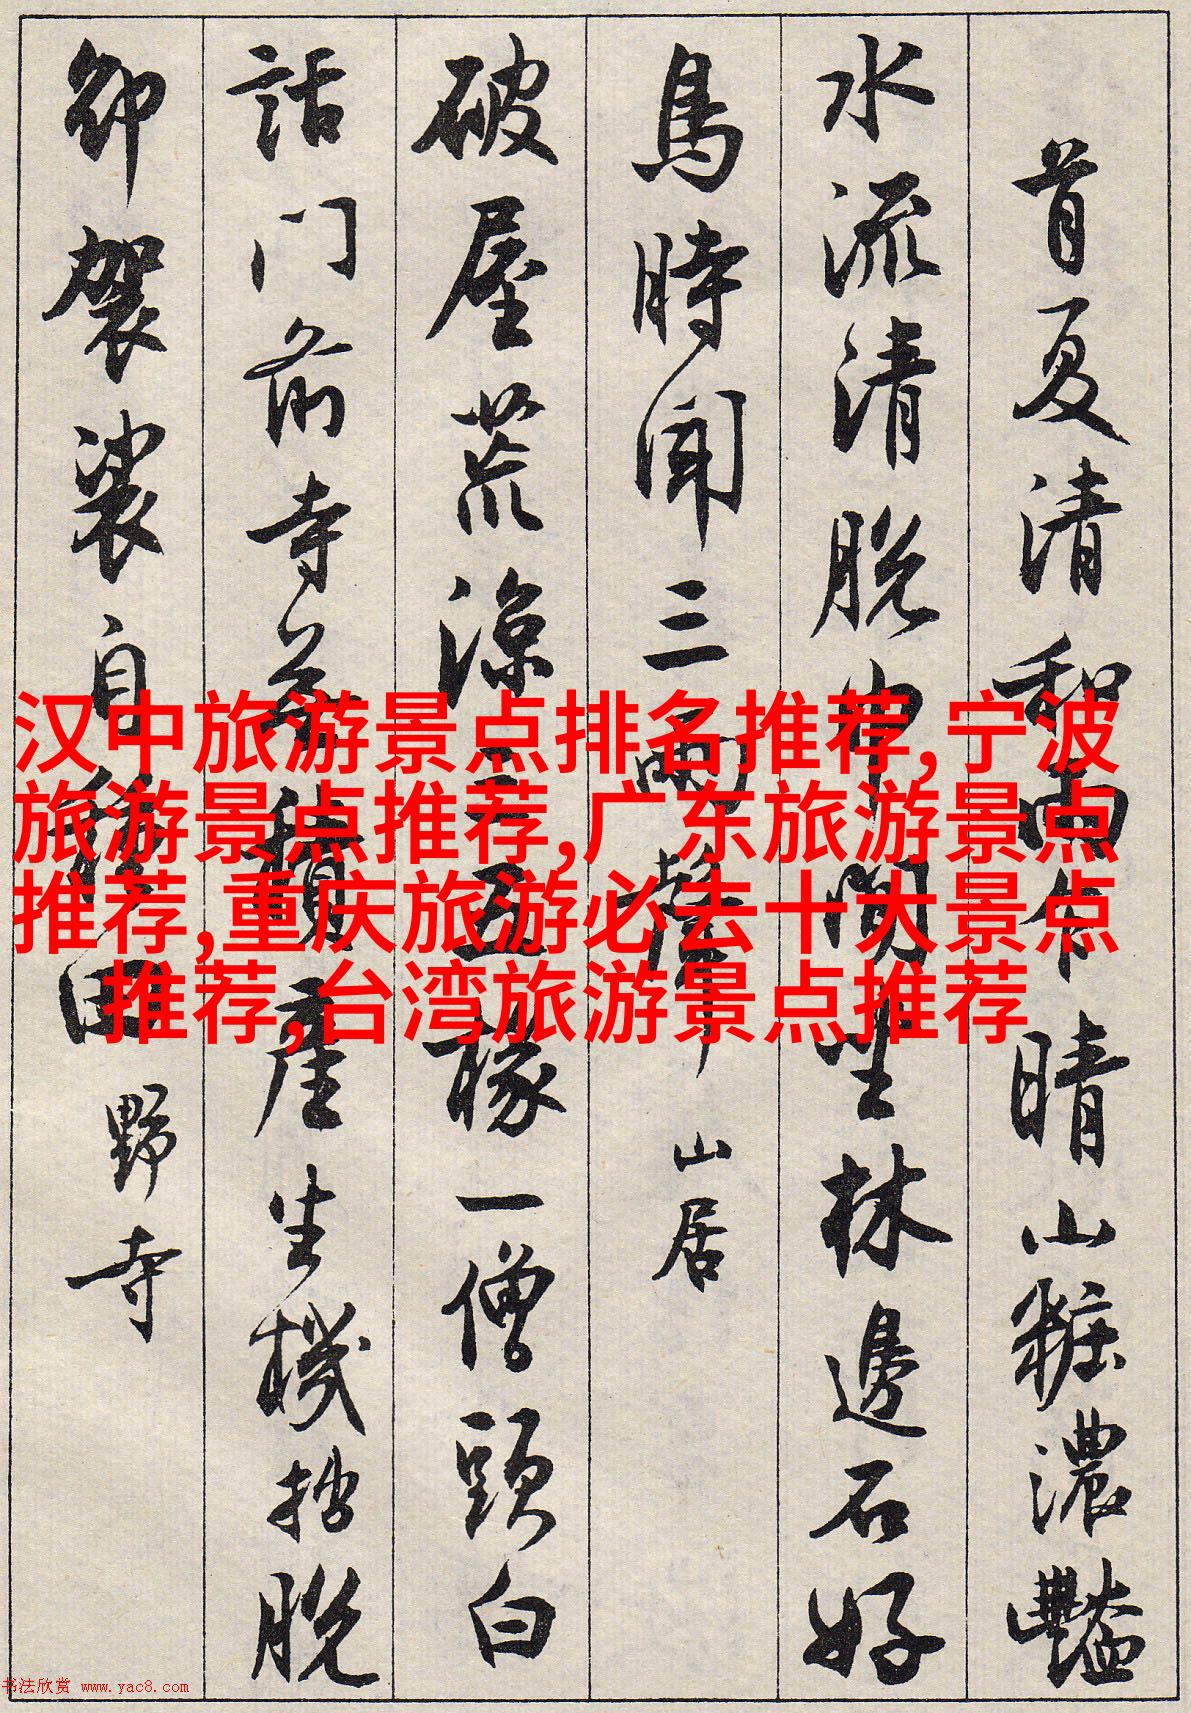 首夏清和雨乍晴山粧濃豔
水流清脫巾閒坐林邊石好
鳥時聞三兩聲 山居
破屋荒涼三五椽一僧頭白
話门前寺無積產生機拙脫
卻袈裟自種田 野寺
汉中旅游景点排名推荐,宁波
旅游景点推荐,广东旅游景点
推荐,重庆旅游必去十大景点
推荐,台湾旅游景点推荐
书法欣赏 www.yac8.com